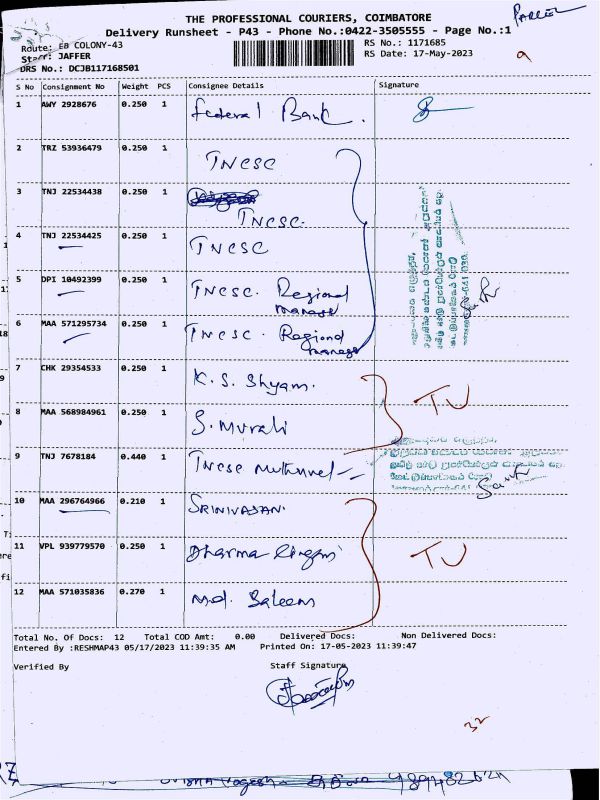 THE PROFESSIONAL COURIERS, COIMBATORE
PARCEL
Delivery Runsheet - P43 - Phone No.:0422-3505555 - Page No.:1
Route: EB COLONY-43
RS No.: 1171685
Staff: JAFFER
RS Date: 17-May-2023
DRS No.: DCJB117168501
S No Consignment No Weight PCS Consignee Details Signature
1 AWY 2928676 0.250 1 Federal Bank.
2 TRZ 53936479 0.250 1 TNCSC
3 TNJ 22534438 0.250 1
TNCSC.
4 TNJ 22534425 0.250 1 TNCSC
5 DPI 10492399 0.250 1 TNCSC. Regional
manager
6 MAA 571295734 0.250 1 TNCSC. Regional
manager
7 CHK 29354533 0.250 1 K.S. Shyam.
TU
8 MAA 568984961 0.250 1 S. Murali
9 TNJ 7678184 0.440 1 TNCSC Muthuvel
10 MAA 296764966 0.210 1 SRINIVASAN
11 VPL 939779570 0.250 1 Dharma Lingam
TU
12 MAA 571035836 0.270 1 Md. Saleem
Total No. Of Docs: 12 Total COD Amt: 0.00 Delivered Docs: Non Delivered Docs:
Entered By :RESHMAP43 05/17/2023 11:39:35 AM Printed On: 17-05-2023 11:39:47
Verified By Staff Signature
32